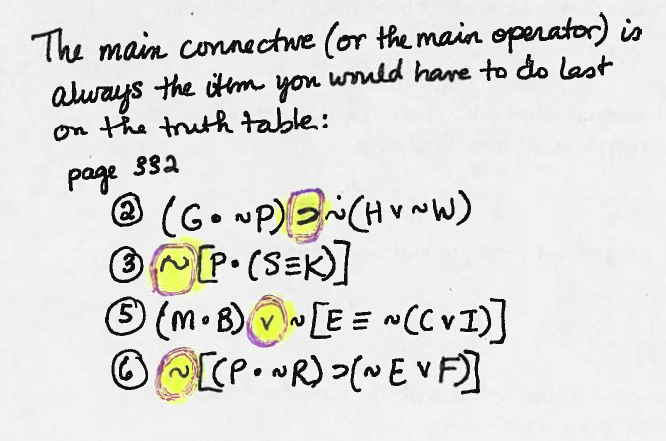 The main connective (or the main operator) is
always the item you would have to do last
on the truth table:
page 332
② (G • ~P) ⊃ ~(H v ~W)
③ ~[P • (S≡K)]
⑤ (M • B) v ~[E ≡ ~(C v I)]
⑥ ~[(P • ~R) ⊃ (~E v F)]